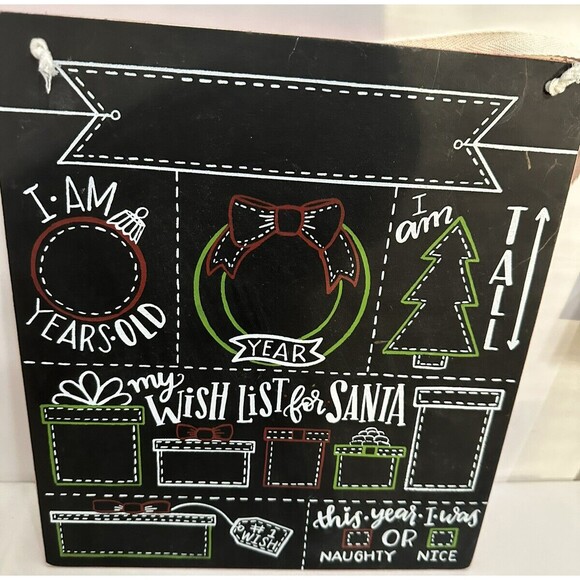 I·AM
YEARS·OLD
YEAR
I
am
TALL
my
WISH LIST for SANTA
#1
WISH
this·year·I·was
OR
NAUGHTY NICE